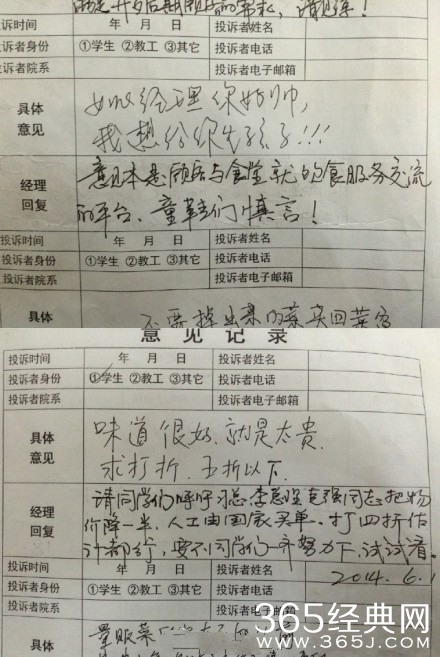 投诉时间 年 月 日 投诉者姓名
投诉者身份 ①学生 ②教工 ③其它 投诉者电话
投诉者院系 投诉者电子邮箱
具体 经理你好帅,
意见 我想给你生孩子!!!
经理 意见本是顾客与食堂就的食服务交流
回复 的平台、童鞋们慎言!
投诉时间 年 月 日 投诉者姓名
投诉者身份 ①学生 ②教工 ③其它 投诉者电话
投诉者院系 投诉者电子邮箱
具体
意见记录
投诉时间 年 月 日 投诉者姓名
投诉者身份 ①学生 ②教工 ③其它 投诉者电话
投诉者院系 投诉者电子邮箱
具体 味道很好,就是太贵.
意见 求打折,五折以下.
经理 请同学们呼吁习总,李总理克强同志把物
回复 价降一半,人工由国家买单、打四折估
计都行,要不同学们一齐努力下,试试看。
2014.6.1
投诉时间 年 月 日 投诉者姓名
投诉者身份 ①学生 ②教工 ③其它 投诉者电话
投诉者院系
具体
365经典网
www.365J.com